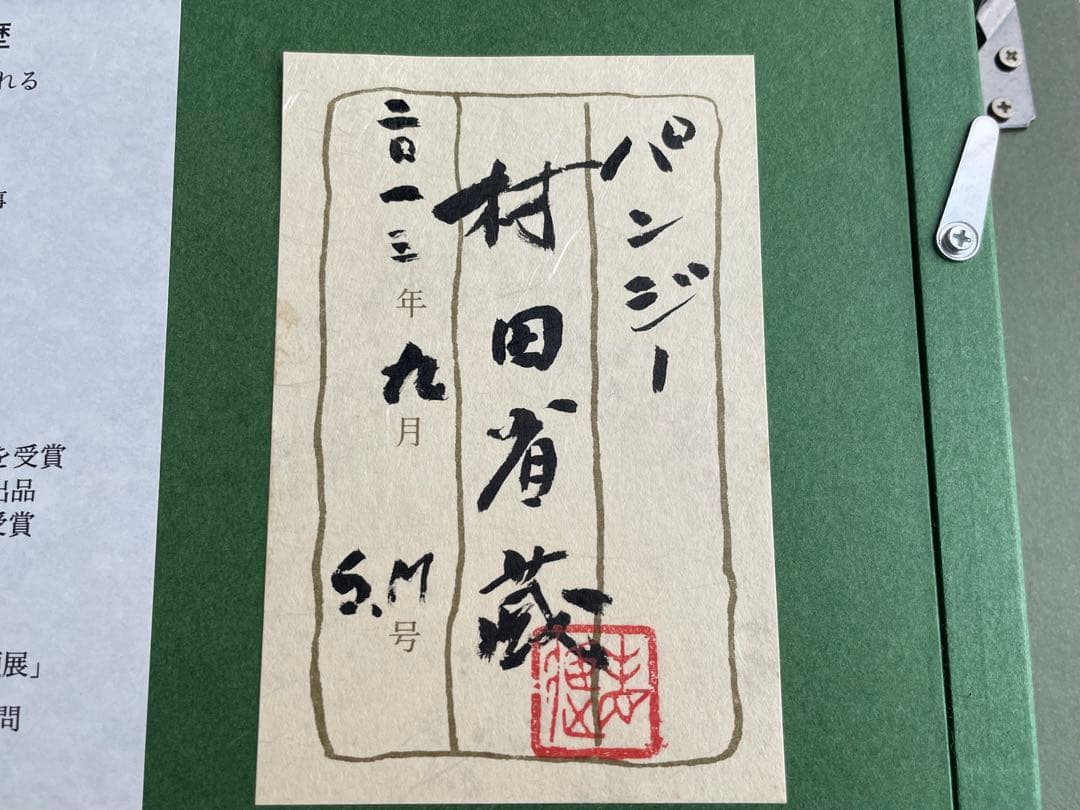 パンジー
村田省蔵
二〇一三年九月
S.M号
歴
れる
事
を受賞
出品
受賞
展」
問